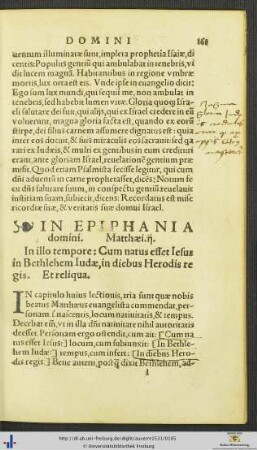 DOMINI 168
uentum illuminatæ sunt, impleta prophetia Isaiæ, di
centis: Populus gentiū qui ambulabat in tenebris, vi
dit lucem magnā. Habitantibus in regione vmbræ
mortis, lux orta est eis. Vnde ipse in euangelio dicit:
Ego sum lux mundi, qui sequit̄ me, non ambulat in
tenebris, sed habebit lumen vitæ. Gloria quoq; Isra
elis salutare dei fuit, quia alij, qui ex Israel credere in eū
voluerunt, magna gloria facta est, quando ex eorū
stirpe, dei filius carnem assumere dignatus est: quia
inter eos docuit, & suis miraculis eos sacrauit: sed ga
uisi ex Iudæis, & multi ex gentibus in eum credituri
erant, ante gloriam Israel, reuelationē gentium præ
misit. Quod etiam Psalmista fecisse legitur, qui cum
dn̄i aduentū in carne prophetasset, dicens: Notum fe
cit dn̄s salutare suum, in conspectu gentiū reuelauit
iustitiam suam, subiecit, dicens: Recordatus est mise
ricordiæ suæ, & veritatis suæ domui Israel.
IN EPIPHANIA
domini. Matthæi.ij.
In illo tempore: Cum natus esset Iesus
in Bethlehem Iudæ, in diebus Herodis re
gis. Et reliqua.
IN capitulo huius lectionis, tria sunt quæ nobis
beatus Matthæus euangelista commendat, per-
sonam s. nascentis, locum natiuitatis, & tempus.
Decebat em̄, vt in illa dn̄i natiuitate nihil autoritatis
deesset. Personam ergo ostendit, cum ait: [Cum na
tus esset Iesus:] locum, cum subiunxit: [In Bethle-
hem Iudæ:] tempus, cum infert: [In diebus Hero-
dis regis.] Bene autem, postq̄ dixit Bethlehem, ad-
http://dl.ub.uni-freiburg.de/diglit/
© Universitätsbibliothek Freiburg